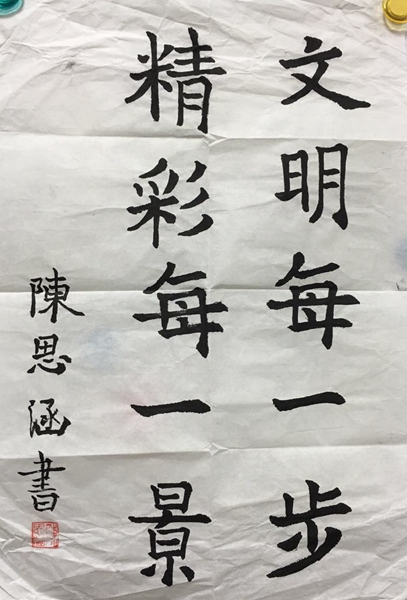 文明每一步
精彩每一景
陳思涵書